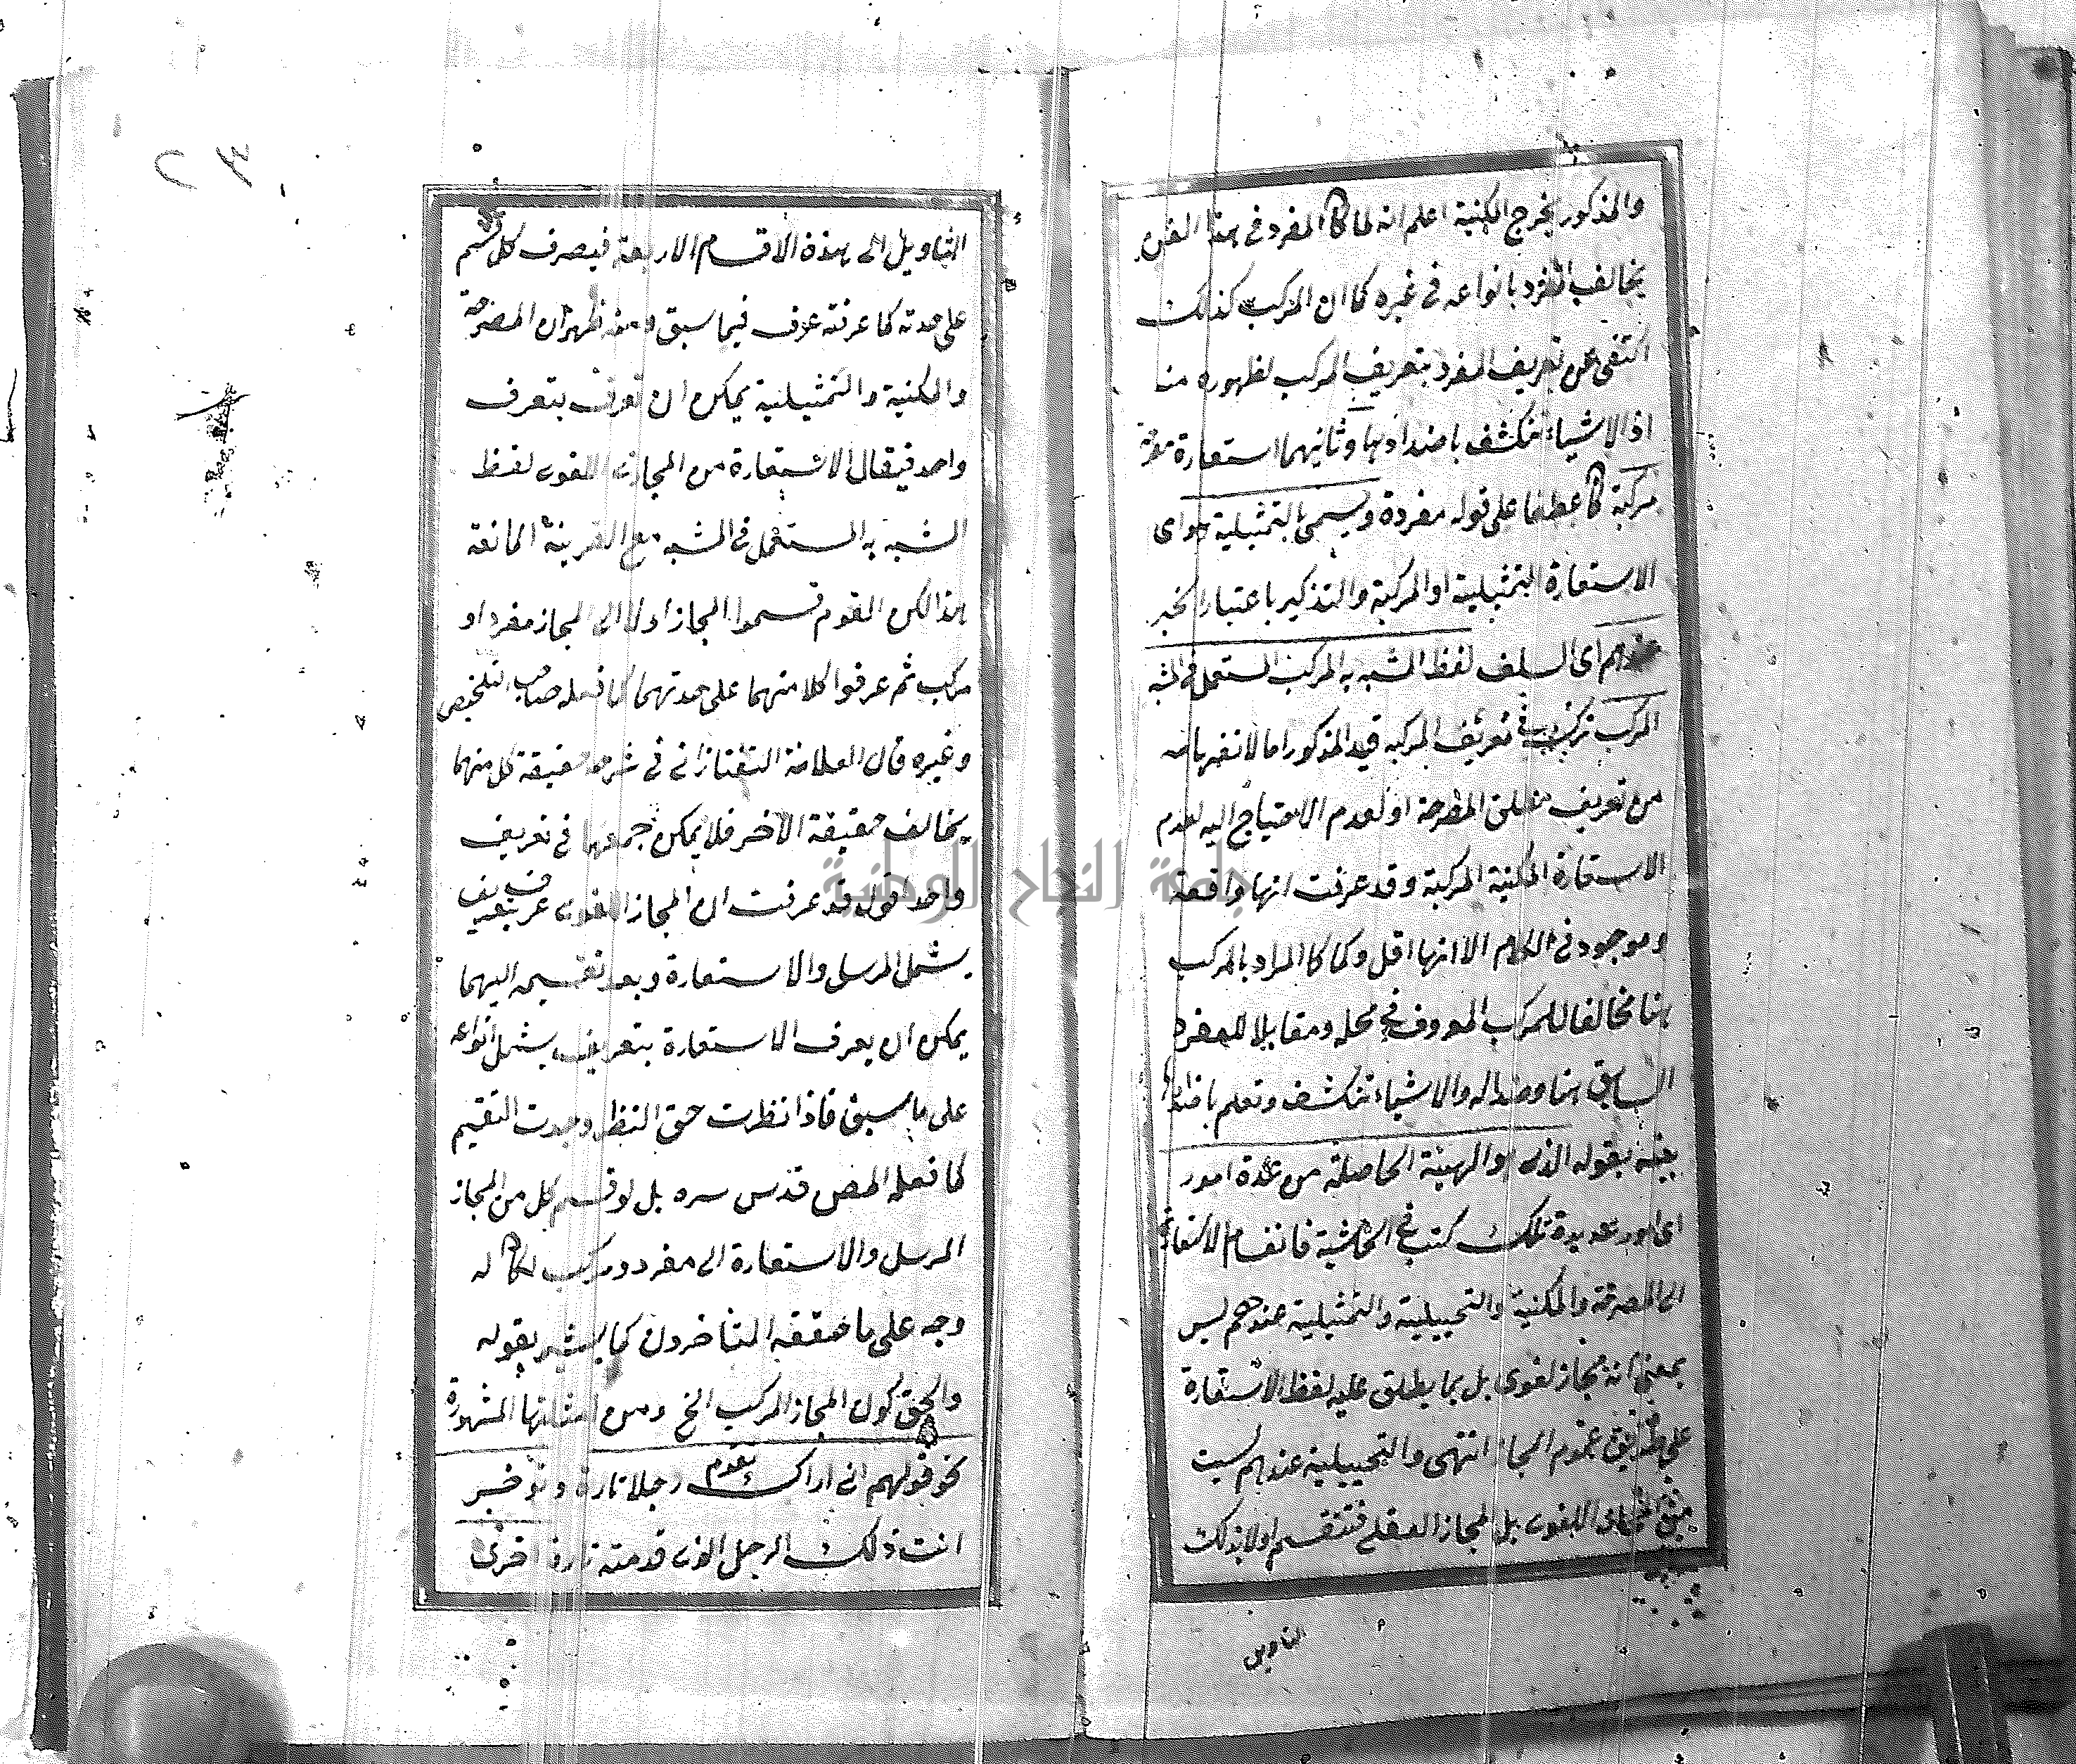 والمذكور يخرج المكنية اعلم انه لما كا المفرد في هذا الفن
يخالف المفرد بانواعه في غيره كما ان المركب كذلك
اكتفى عن تعريف المفرد بتعريف المركب لظهوره منه
اذ الاشياء تنكشف باضدادها وثانيهما استعارة
مركبة كا عطفا على قوله مفردة ويسمى التمثيلية هو اى
الاستعارة التمثيلية او المركبة والتذكير باعتبار الخبر
عندهم اى السلف لفظ المشبه به المركب المستعمل في المشبه
المركب ترك في تعريف المركبة قيد المذكور اما لانفهامه
من تعريف مطلق المصرحة او لعدم الاحتياج اليه لعدم
الاستعارة المكنية المركبة وقد عرفت انها واقعة
وموجود في الكلام الا انها اقل وكما كا المراد بالمركب
هنا مخالفا للمركب المعروف في محله ومقابلا للمفرد
السابق هنا وضدا له والاشياء تنكشف وتعلم باضدادها
بينه بقوله الذى هو الهيئة الحاصلة من عدة امور
اى امور عديدة تلك كتب في الحاشية فانقسام الاستعارة
الى المصرحة والمكنية والتخييلية والتمثيلية عندهم ليس
بمعنى انه مجاز لغوى بل بما يطلق عليه لفظ الاستعارة
على طريق عموم المجاز انتهى والتخييلية عندهم ليست
من المجاز اللغوى بل المجاز العقلي فتنقسم اولا بذلك
التاويل
٢٣
التاويل الى هذه الاقسام الاربعة فيصرف كل قسم
على حدته كما عرفته عرف فيما سبق ومنه ظهر ان المصرحة
والمكنية والتمثيلية يمكن ان تعرف بتعرف
واحد فيقال الاستعارة من المجاز اللغوى لفظ
المشبه به المستعمل في المشبه مع القرينة المانعة
هذا لكن القوم قسموا المجاز اولا الى المجاز مفرد او
مركب ثم عرفوا كلا منهما على حدتهما كما فعله صاحب التلخيص
وغيره قال العلامة التفتازانى في شرحه حقيقة كل منهما
يخالف حقيقة الآخر فلا يمكن جمعهما في تعريف
واحد قوله قد عرفت ان المجاز اللغوى عرف بتعريف
يشمل المرسل والاستعارة وبعد تقسيمه اليهما
يمكن ان يعرف الاستعارة بتعريف يشمل انواعه
على ما سبق فاذا نظرت حق النظر وجدت التقسيم
كما فعله المص قدس سره بل لو قسم كل من المجاز
المرسل والاستعارة الى مفرد ومركب لكا له
وجه على ما حققه المتاخرون كما يشير بقوله
والحق كون المجاز المركب الخ ومن امثلتها المشهورة
نحو قولهم انى اراك تقدم رجلا تارة وتؤخر
انت ذلك الرجل الذى قدمته تارة اخرى